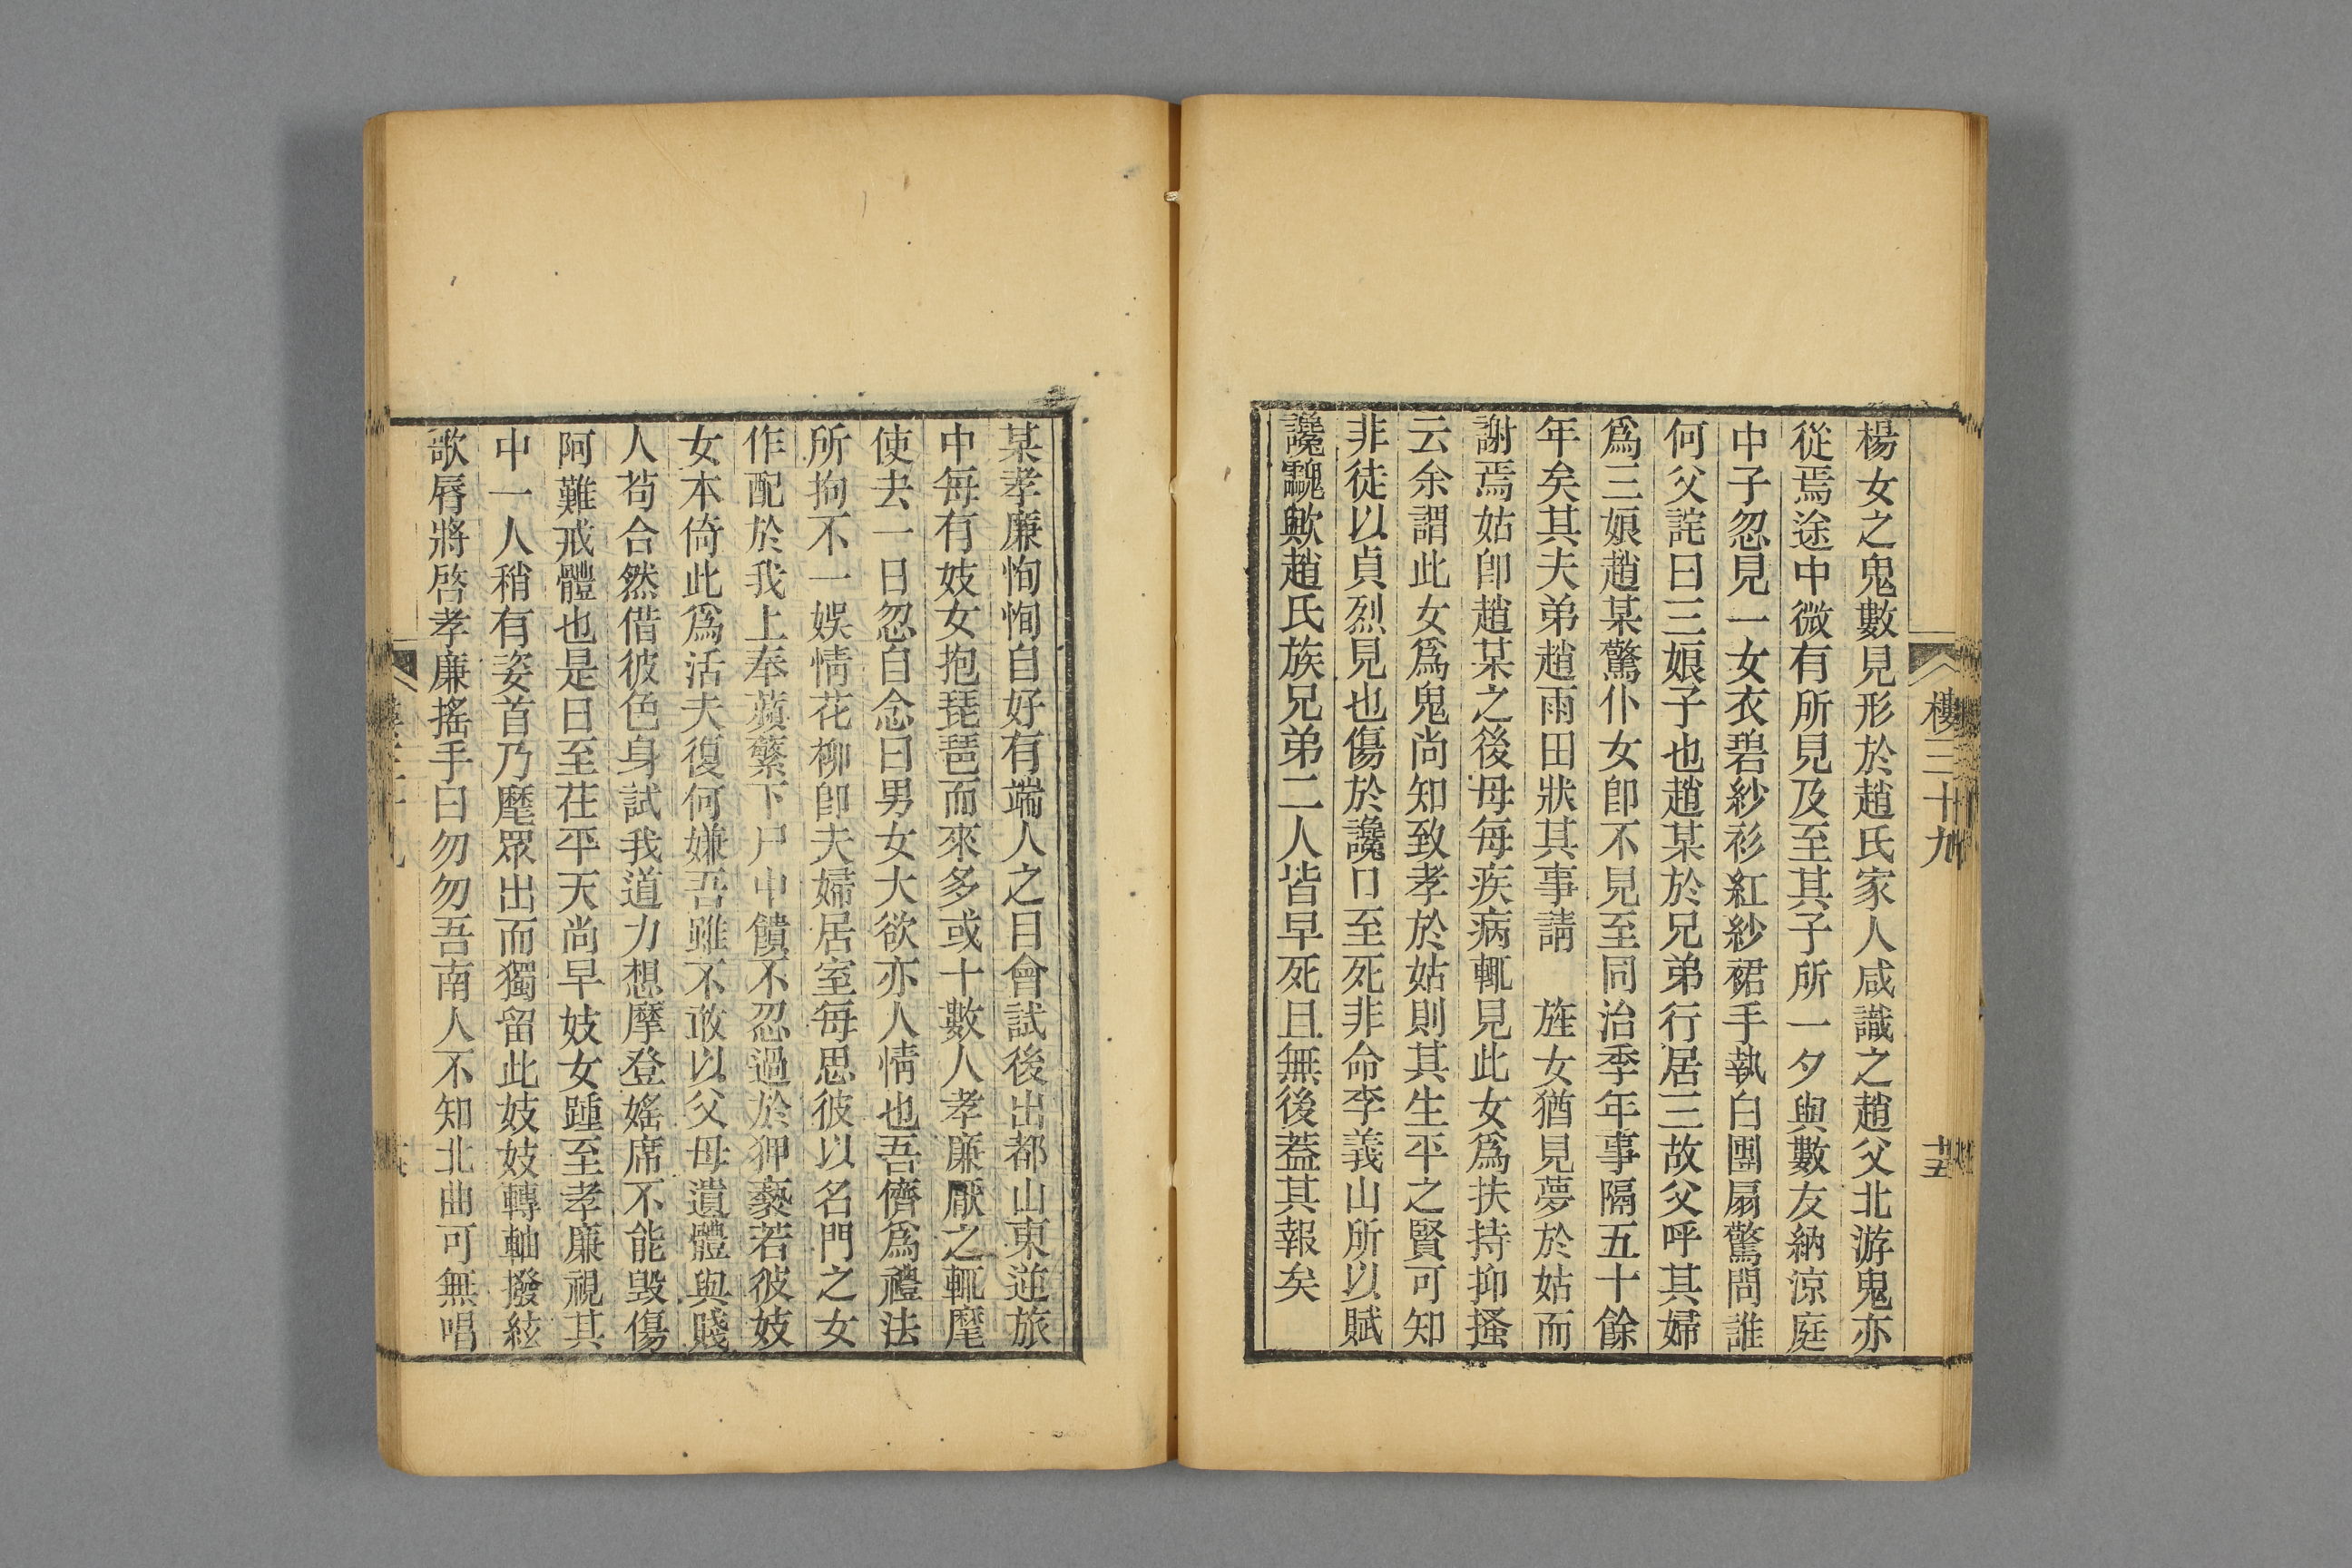 樓三十九
十五
楊女之鬼數見形於趙氏家人咸識之趙父北游鬼亦
從焉途中微有所見及至其子所一夕與數友納涼庭
中子忽見一女衣碧紗衫紅紗裙手執白團扇驚問誰
何父詫曰三娘子也趙某於兄弟行居三故父呼其婦
爲三娘趙某驚仆女卽不見至同治季年事隔五十餘
年矣其夫弟趙雨田狀其事請　旌女猶見夢於姑而
謝焉姑卽趙某之後母每疾病輒見此女爲扶持抑搔
云余謂此女爲鬼尚知致孝於姑則其生平之賢可知
非徒以貞烈見也傷於讒口至死非命李義山所以賦
讒䰫歟趙氏族兄弟二人皆早死且無後葢其報矣
某孝廉恂恂自好有端人之目會試後出都山東逆旅
中每有妓女抱琵琶而來多或十數人孝廉厭之輒麾
使去一日忽自念曰男女大欲亦人情也吾儕爲禮法
所拘不一娛情花柳卽夫婦居室每思彼以名門之女
作配於我上奉蘋蘩下尸中饋不忍過於狎褻若彼妓
女本倚此爲活夫復何嫌吾雖不敢以父母遺體與賤
人苟合然借彼色身試我道力想摩登媱席不能毀傷
阿難戒體也是日至茌平天尚早妓女踵至孝廉視其
中一人稍有姿首乃麾眾出而獨留此妓妓轉軸撥絃
歌脣將啓孝廉搖手曰勿勿吾南人不知北曲可無唱